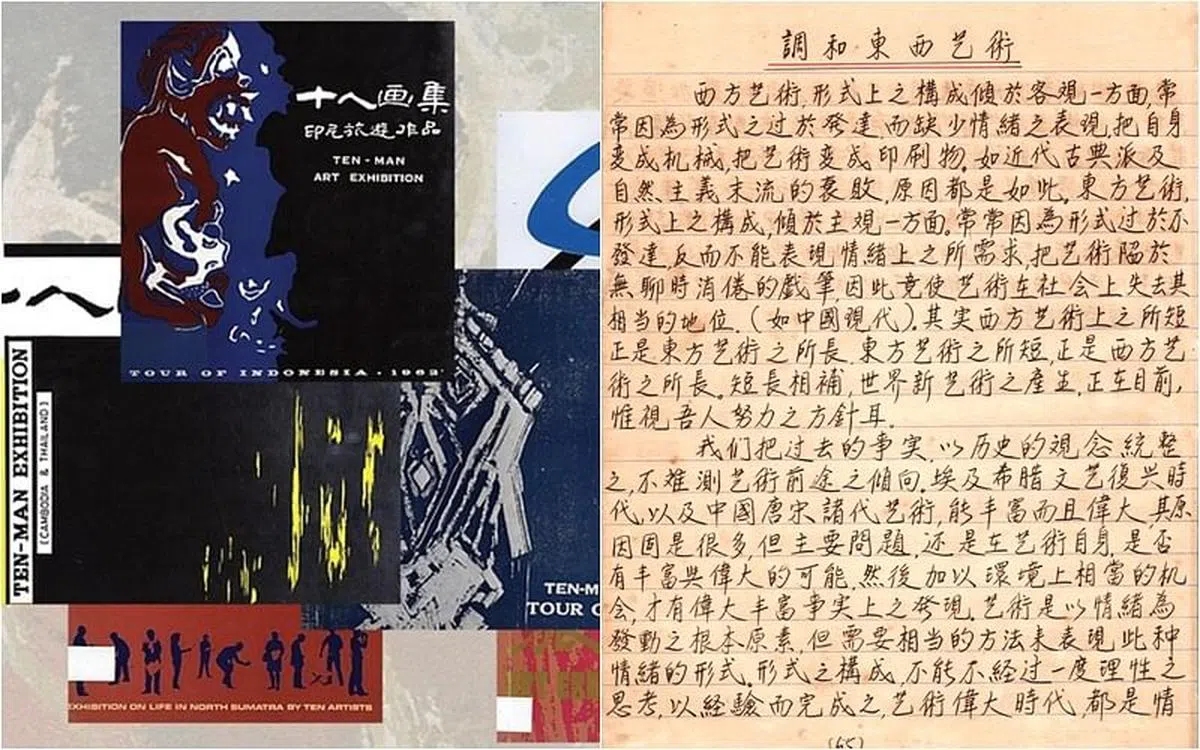 十人画集
印尼旅遊作品
TEN-MAN
ART EXHIBITION
TOUR OF INDONESIA · 1962
人
TEN-MAN EXHIBITION
(CAMBODIA & THAILAND)
TEN-M
TOUR O
EXHIBITION ON LIFE IN NORTH SUMATRA BY TEN ARTISTS
調和東西艺術
西方艺術,形式上之構成傾於客視一方面,常
常因為形式之过於發達而缺少情緒之表現,把自身
変成机械,把艺術変成印刷物.如近代古典派及
自然主義末流的衰敗,原因都是如此.東方艺術,
形式上之構成,傾於主観一方面.常常因為形式过於不
發達,反而不能表現情緒上之所需求,把艺術陷於
無聊時消倦的戲筆,因此竟使艺術在社会上失去其
相当的地位.(如中國現代).其实西方艺術上之所短
正是東方艺術之所長.東方艺術之所短,正是西方艺
術之所長.短長相補,世界新艺術之產生,正在目前,
惟視吾人努力之方針耳.
我们把过去的事实,以历史的視念統整
之,不难測艺術前途之傾向.埃及希腊文艺復兴時
代,以及中國唐宋諸代艺術,能丰富而且偉大,其原
因固是很多,但主要問題,还是在艺術自身,是否
有丰富與偉大的可能.然後加以環境上相當的机
会,才有偉大丰富事实上之発現.艺術是以情緒為
發動之根本原素,但需要相当的方法来表現此种
情緒的形式.形式之構成,不能不经过一度理性之
思考,以経驗而完成之,艺術偉大時代,都是情
(65)